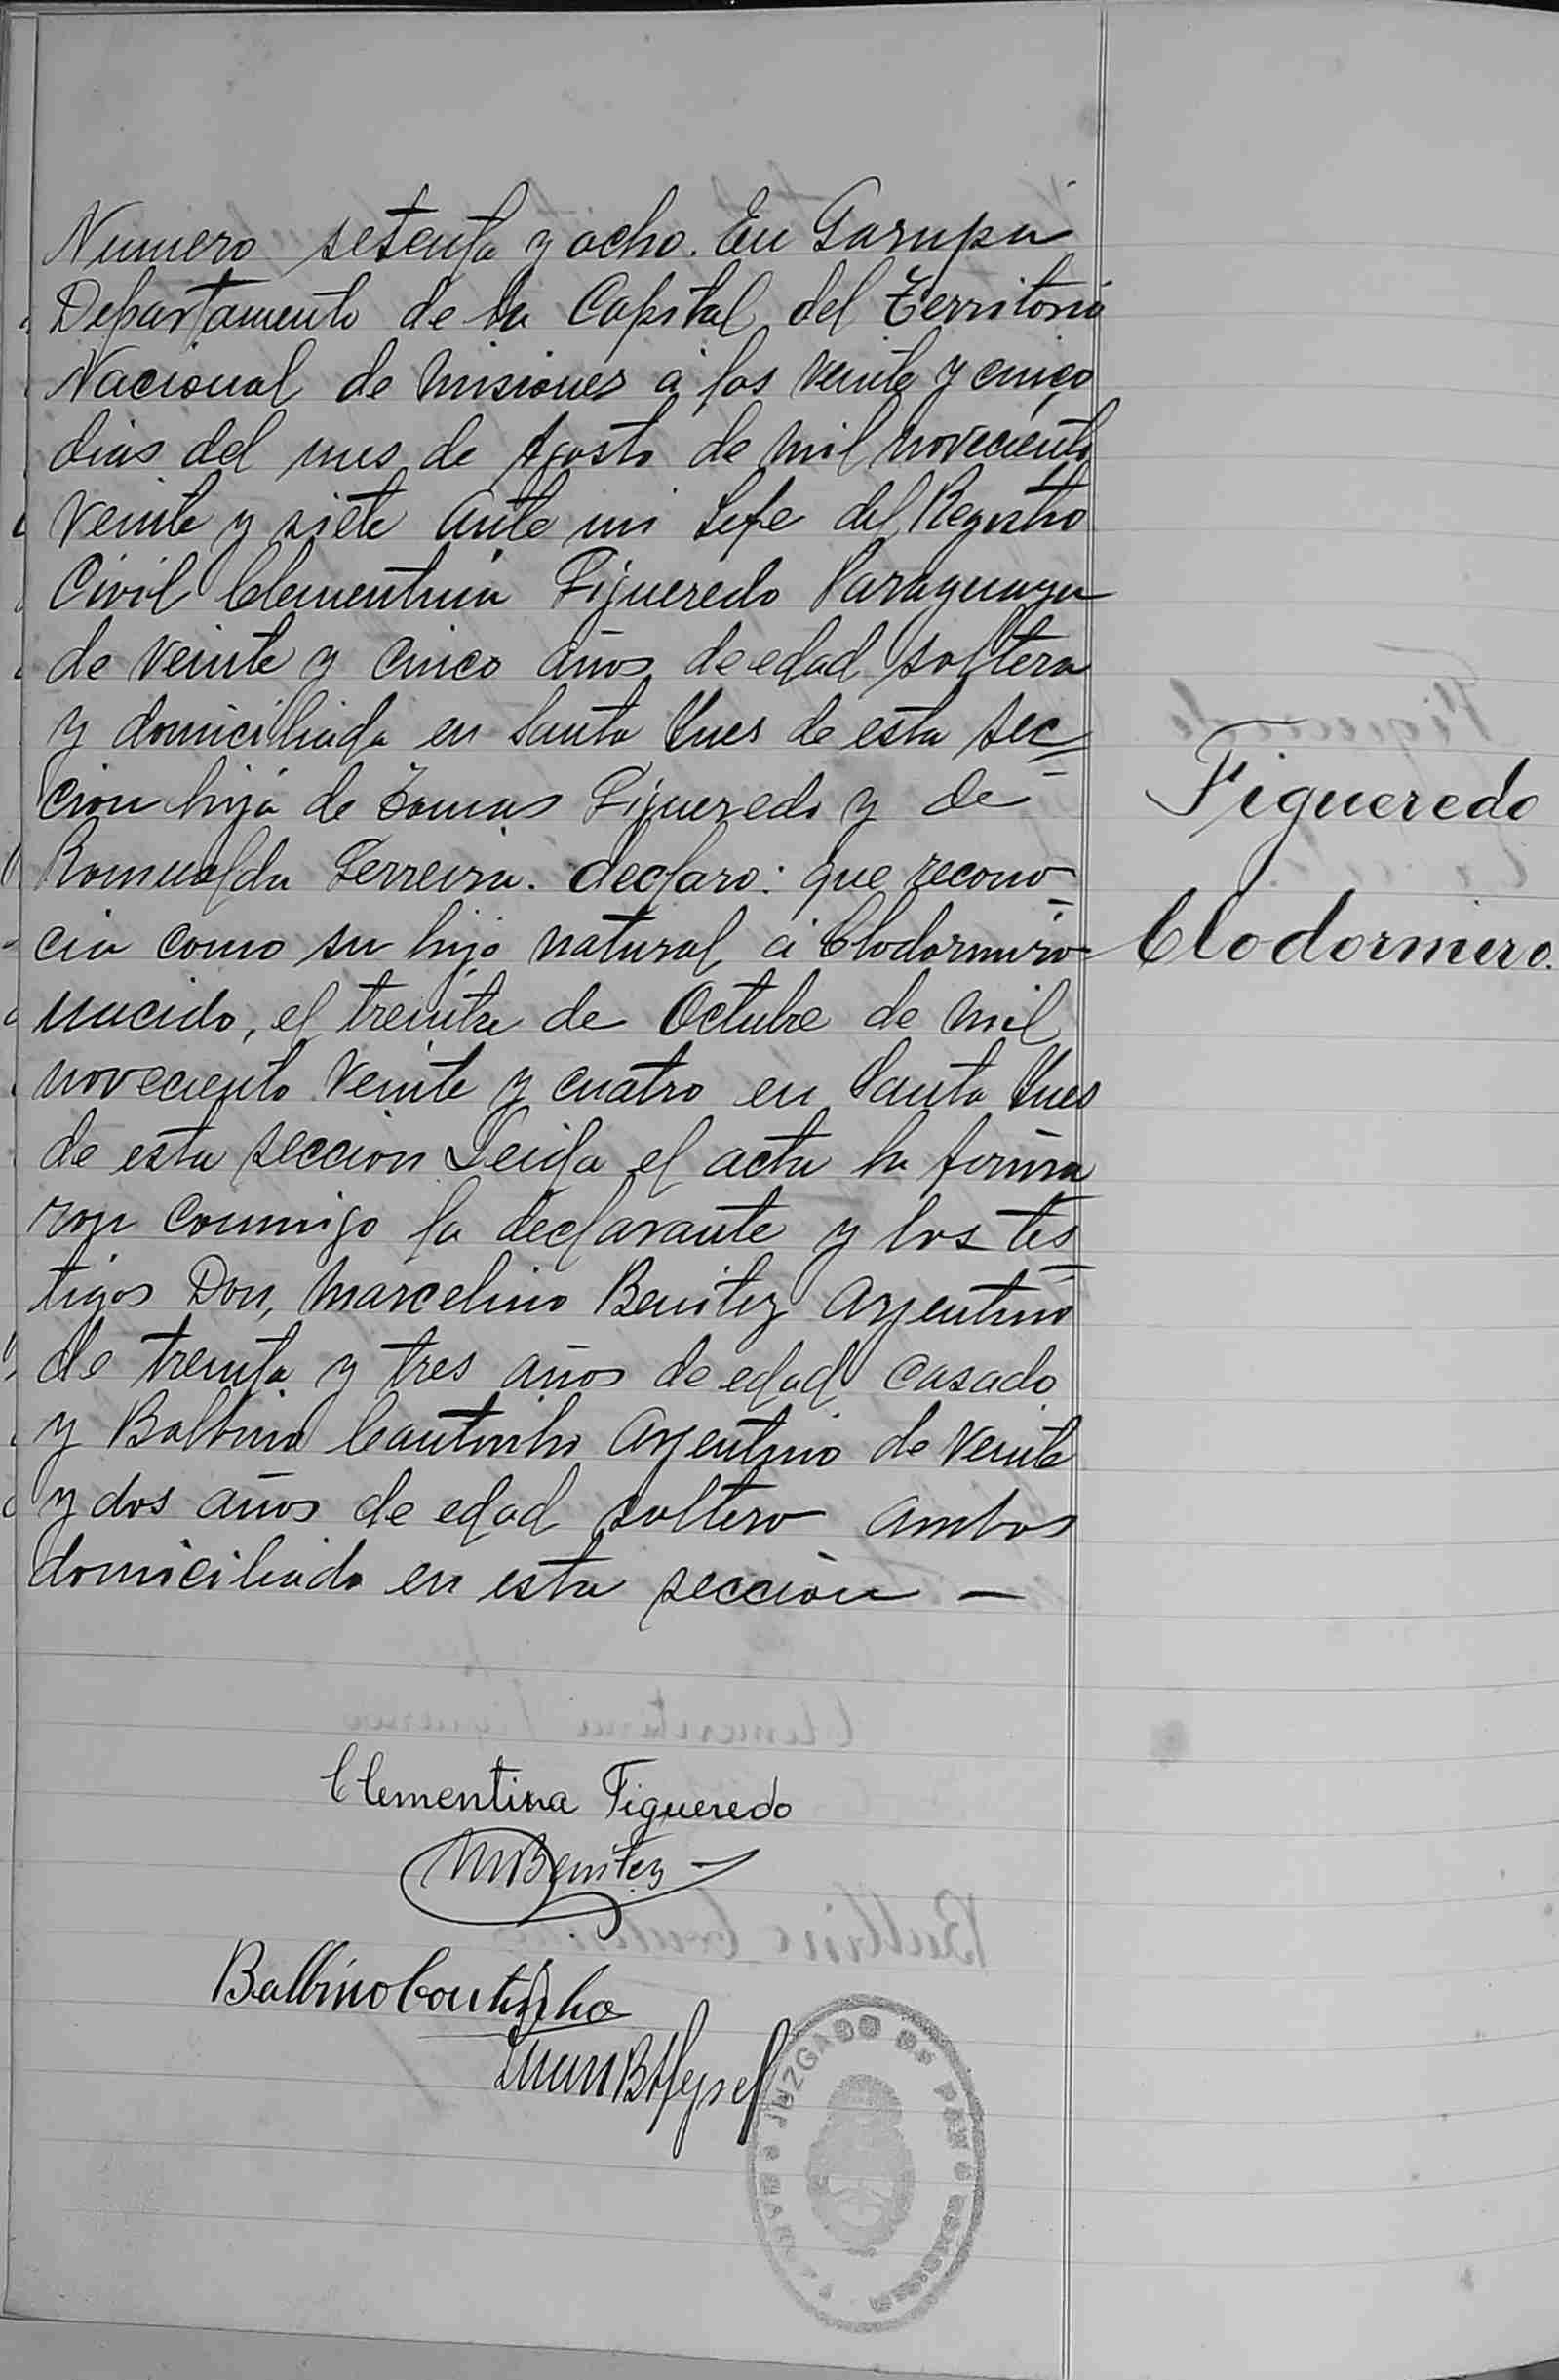 Numero setenta y ocho. En Garupa
Departamento de la Capital del Territorio
Nacional de Misiones á los veinte y cinco
dias del mes de Agosto de mil noveciento
veinte y siete ante mi Jefe del Registro
Civil Clementina Figueredo Paraguaya
de veinte y cinco años de edad soltera
y domiciliada en Santa Ynes de esta sec=
cion hija de Tomas Figueredo y de
Romualda Ferreira. declaro: que recono=
cia como su hijo natural á Clodormiro
nacido, el treinta de Octubre de mil
noveciento veinte y cuatro en Santa Ynes
de esta seccion Leida el acta la firma=
ron conmigo la declarante y los tes=
tigos Don, Marcelino Benitez Argentino
de treinta y tres años de edad casado
y Balbino Cautinho Argentino de veinte
y dos años de edad soltero ambos
domiciliado en esta sección —
Figueredo
Clodormiro.
Clementina Figueredo
MBenitez
Balbino Coutinho
Juan B
JUZGADO DE PAZ